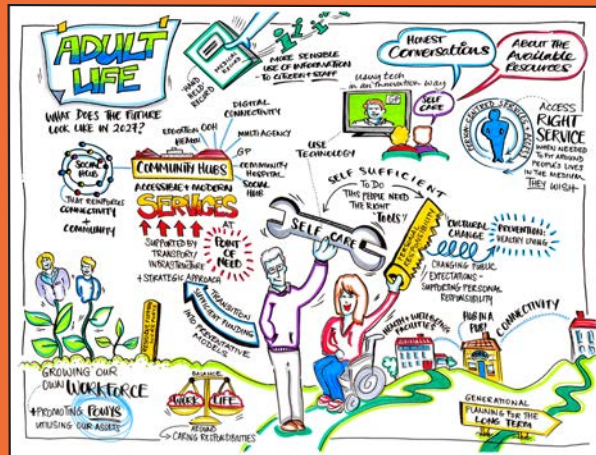 ADULT
LIFE
WHAT DOES THE FUTURE
LOOK LIKE IN 2027?
HAND
HELD
RECORD
MEDICAL
RECORD
MORE SENSIBLE
USE OF INFORMATION
- TO CITIZEN + STAFF
HONEST
Conversations
ABOUT THE
Available
RESOURCES
Using tech
in an innovation way
GP
SELF
CARE
PERSON-CENTRED SERVICES + ACCESS
ACCESS
RIGHT
SERVICE
WHEN NEEDED
TO FIT AROUND
PEOPLE'S LIVES
IN THE MEDIUM
THEY WISH
SOCIAL
HUBS
THAT REINFORCES
CONNECTIVITY
+
COMMUNITY
EDUCATION
HEALTH
OOH
DIGITAL
CONNECTIVITY
MULTIAGENCY
GP
COMMUNITY
HOSPITAL
SOCIAL
HUB
COMMUNITY HUBS
ACCESSIBLE + MODERN
SERVICES
AT
POINT
OF
NEED
SUPPORTED BY
TRANSPORT/
INFRASTRUCTURE
+ STRATEGIC APPROACH
USE
TECHNOLOGY
SELF SUFFICIENT
TO DO
THIS PEOPLE NEED
THE RIGHT
"Tools"
SELF CARE
PERSONAL
RESPONSIBILITY
CULTURAL
CHANGE
PREVENTION:
HEALTHY LIVING
CHANGING PUBLIC
EXPECTATIONS -
SUPPORTING PERSONAL
RESPONSIBILITY
TRANSITION
SUFFICIENT FUNDING
INTO PREVENTATIVE
MODELS
HEALTH + WELLBEING
FACILITIES
HUB IN A
PUB!
CONNECTIVITY
GROWING OUR
OWN WORKFORCE
+ PROMOTING POWYS
UTILISING OUR ASSETS
BALANCE
WORK
LIFE
AROUND
CARING RESPONSIBILITIES
GENERATIONAL
PLANNING FOR THE
LONG TERM